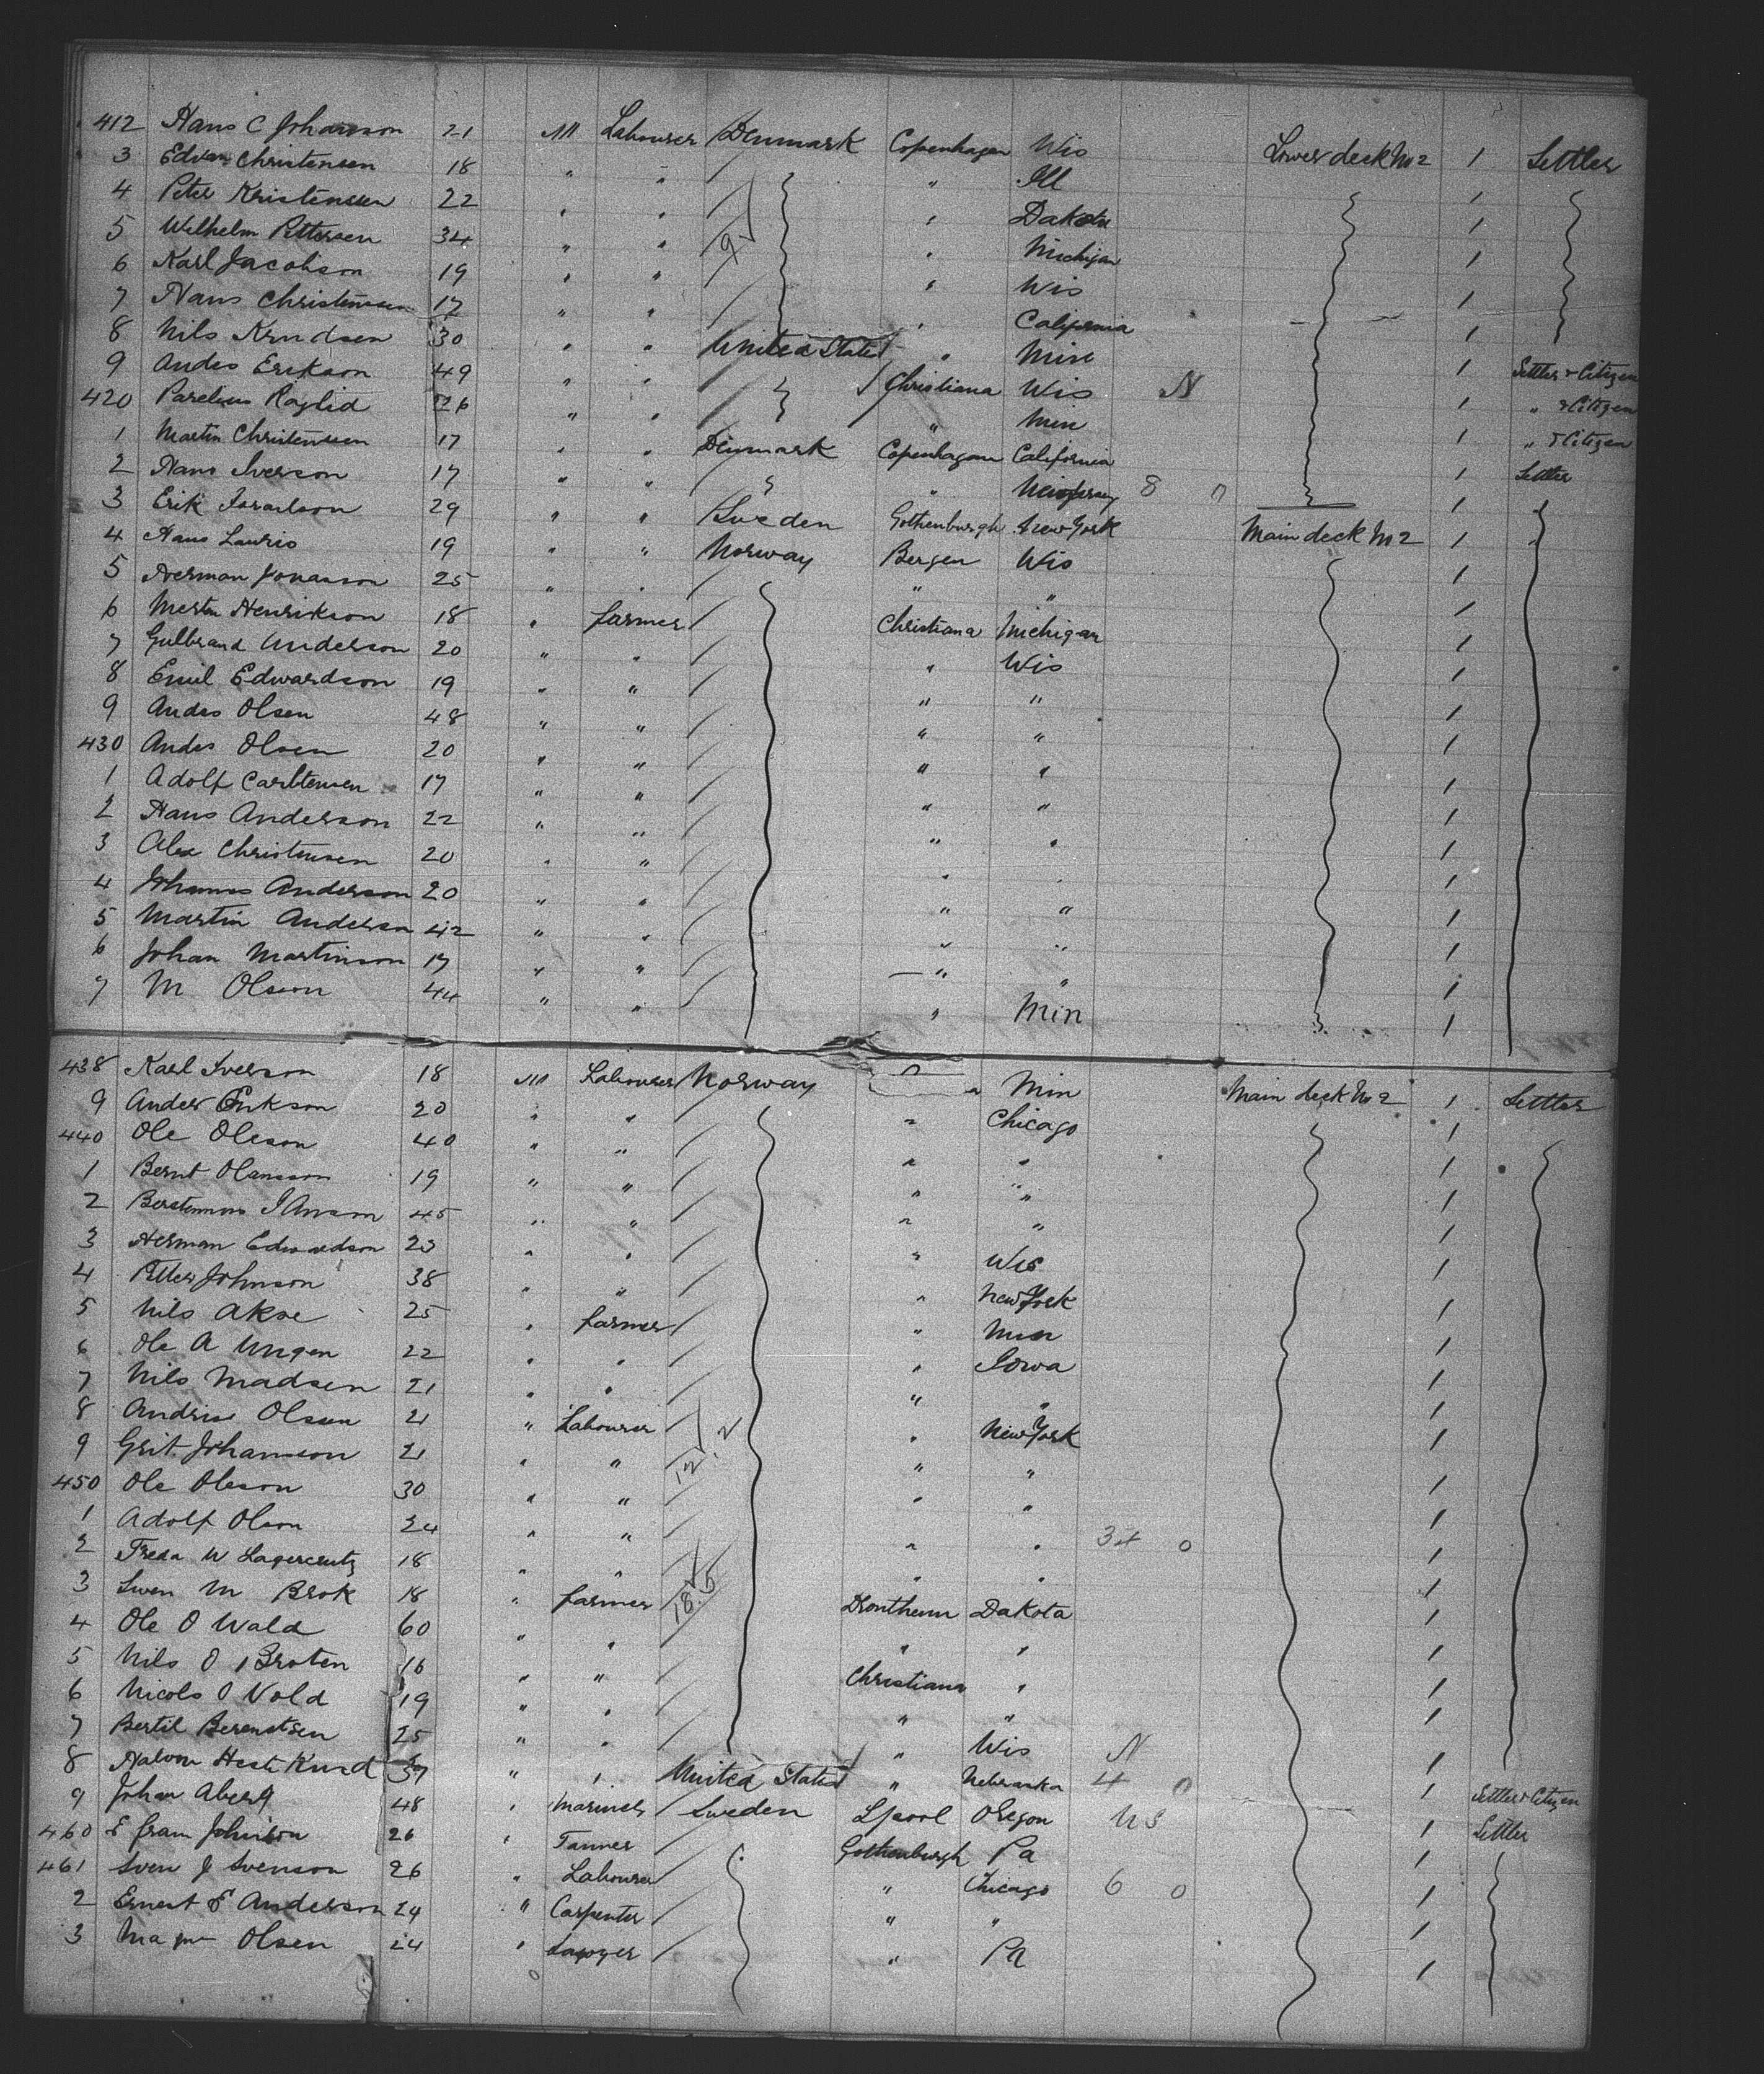 412 Hans C Johanson 21 M Labourer Denmark Copenhagen Wis Lower deck No 2 1 Settler
3 Edvar Christensen 18 " " " Ill 1
4 Peter Kristensen 22 " " " Dakota 1
5 Wilhelm Pettersen 34 " " " Michigan 1
6 Karl Jacobson 19 " " " Wis 1
7 Hans Christensen 17 " " " California 1
8 Nils Knudsen 30 " " United States " Min 1 Settler & Citizen
9 Andes Erikson 49 " " Christiana Wis N 1 " & Citizen
420 26 " " " Min 1 " & Citizen
1 Martin Christensen 17 " " Denmark Copenhagen California 1 Settler
2 Hans Iverson 17 " " " New Jersey 8 0 1
3 Erik Israelson 29 " " Sweden Gothenburgh New York Main deck No 2 1
4 Hans Lauris 19 " " Norway Bergen Wis 1
5 Herman Jonasson 25 " " " " 1
6 Henrikson 18 " farmer Christiana Michigan 1
7 Gulbrand Anderson 20 " " " Wis 1
8 Emil Edwardson 19 " " " " 1
9 Andes Olsen 48 " " " " 1
430 Andes Olsen 20 " " " " 1
1 Adolf Carlstensen 17 " " " " 1
2 Hans Anderson 22 " " " " 1
3 Alex Christensen 20 " " " " 1
4 Johannes Anderson 20 " " " " 1
5 Martin Anderson 42 " " " " 1
6 Johan Martinson 17 " " " " 1
7 M Olson 44 " " " Min 1
438 Karl Iverson 18 M Labourer Norway " Min Main deck No 2 1 Settler
9 Ander Erikson 20 " " " Chicago 1
440 Ole Oleson 40 " " " " 1
1 Bernt Olansson 19 " " " " 1
2 45 " " " " 1
3 Herman Edwardson 23 " " " Wis 1
4 Petter Johnson 38 " " " New York 1
5 Nils Akse 25 " farmer " Min 1
6 Ole A Ungen 22 " " " Iowa 1
7 Nils Madsen 21 " " " " 1
8 Andrew Olsen 21 " Labourer " New York 1
9 Grit. Johannson 21 " " " " 1
450 Ole Oleson 30 " " " " 1
1 Adolf Olson 24 " " " " 34 0 1
2 Freda W Lagercrutz 18 " " " " 1
3 Swen M Brok 18 " farmer Drontheim Dakota 1
4 Ole O Wald 60 " " " " 1
5 Nils O Broten 16 " " Christiana " 1
6 Nicols O Vold 19 " " " " 1
7 Bertil Berentsen 25 " " " Wis N 1
8 Halvor 37 " " United States " Nebraska 4 0 1 Settler & Citizen
9 Johan Aberg 48 " Mariner Sweden Lpool Oregon US 1 Settler
460 E Fram Johnson 26 " Tanner Gothenburgh Pa 1
461 Sven J Svenson 26 " Labourer " Chicago 6 0 1
2 Ernest E Anderson 24 " Carpenter " " 1
3 Olsen 24 " " Pa 1